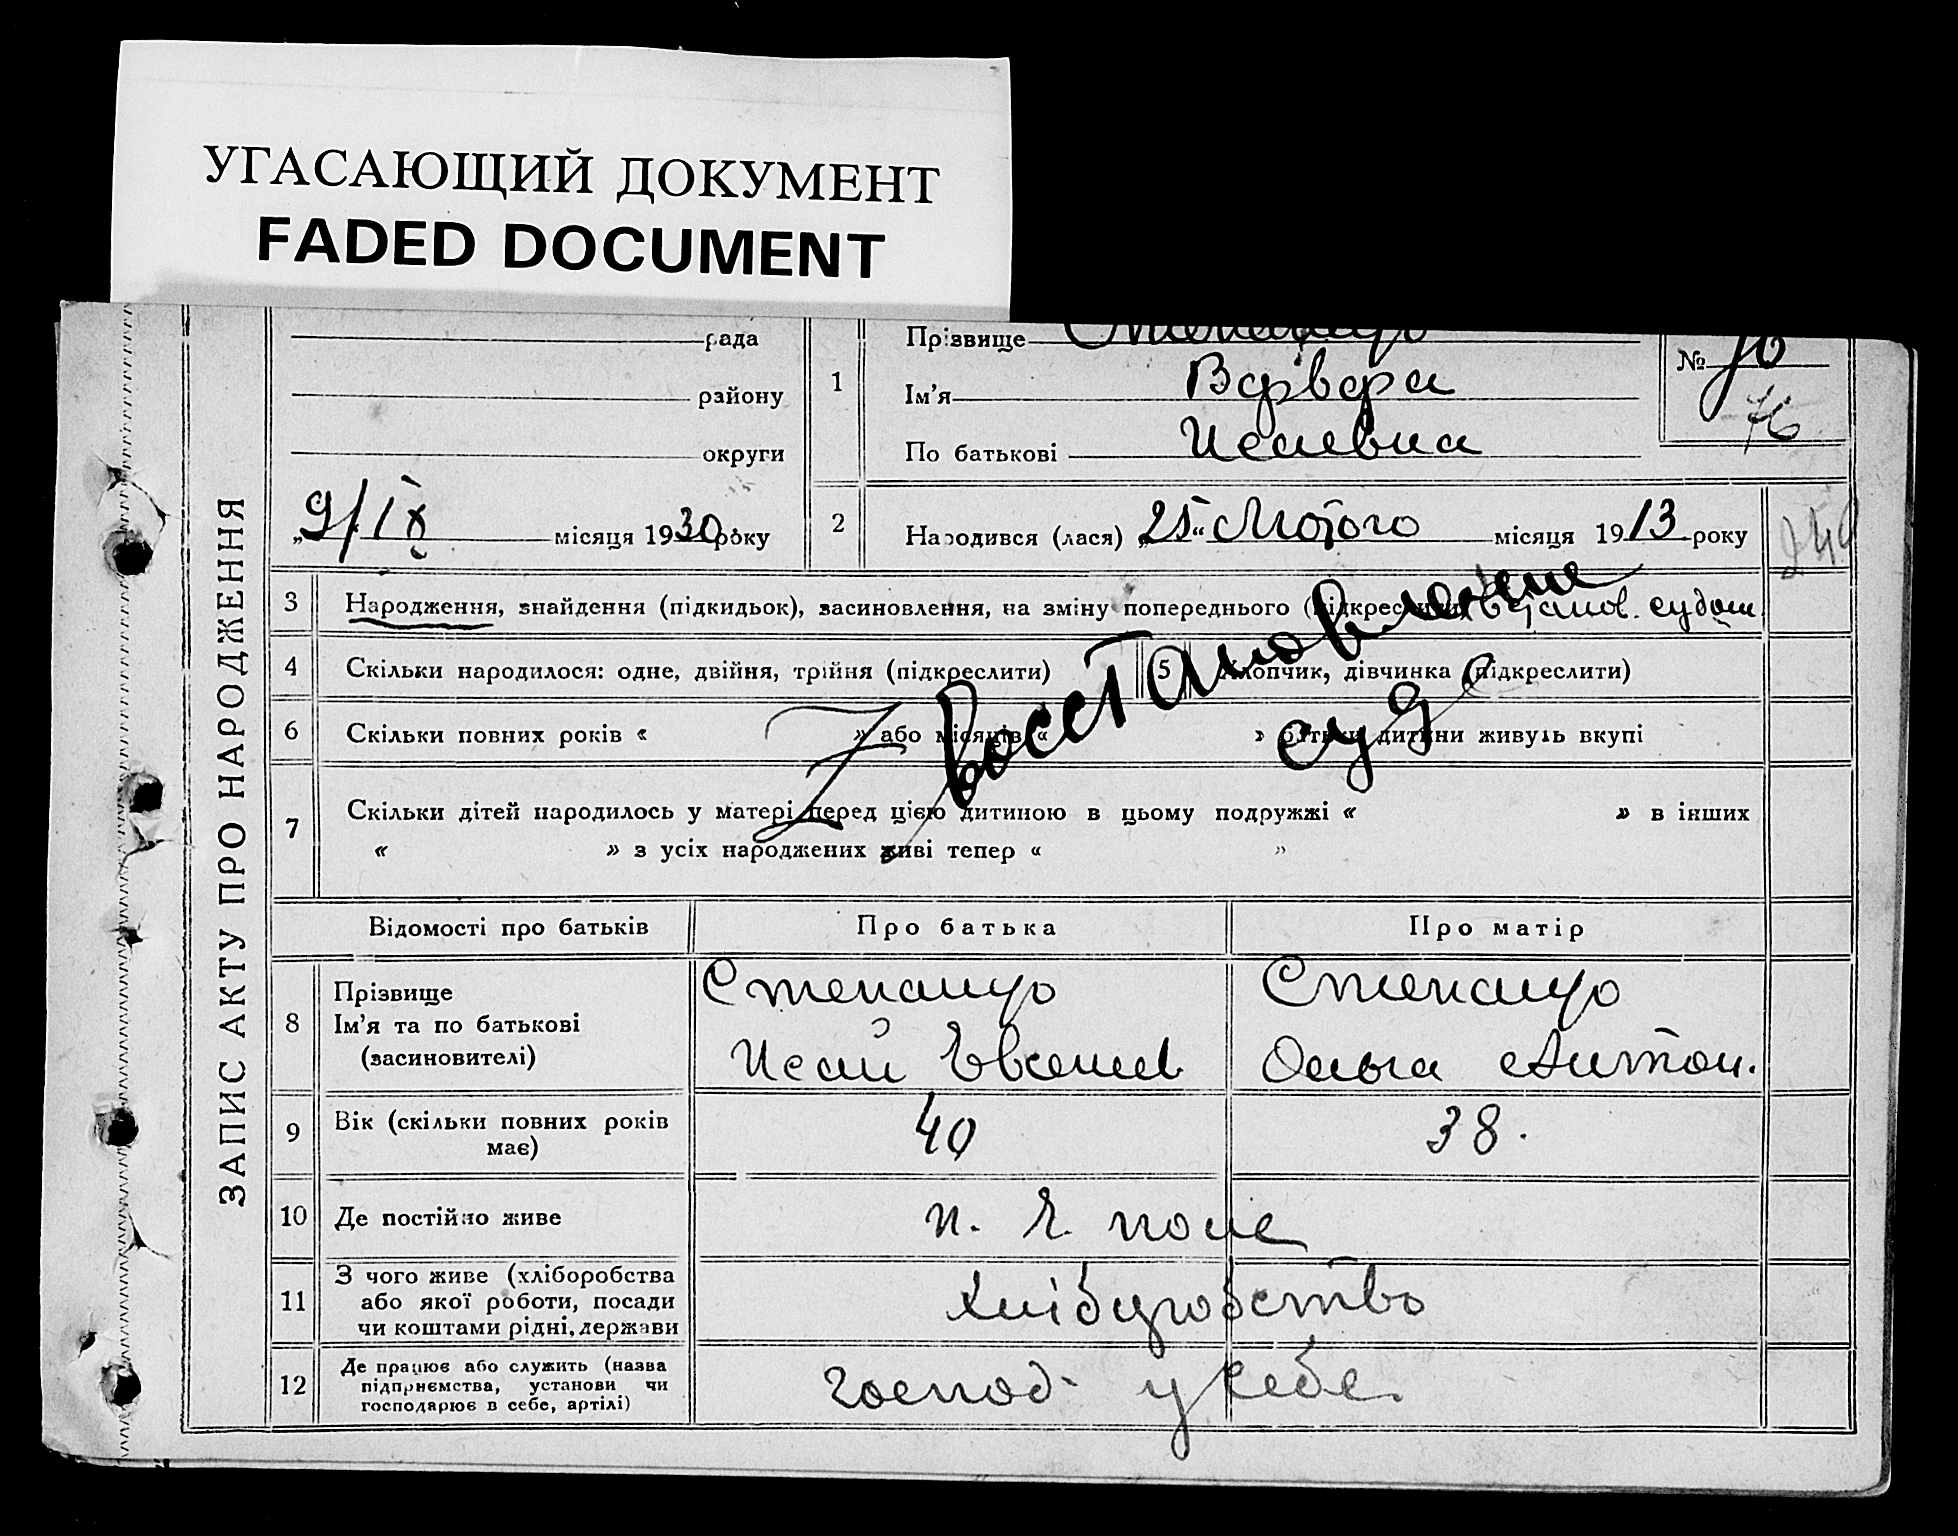 УГАСАЮЩИЙ ДОКУМЕНТ
FADED DOCUMENT
ЗАПИС АКТУ ПРО НАРОДЖЕННЯ
рада
району
округи
„9/IX місяця 1930 року
1
Прізвище
Ім’я Варвара
По батькові Исаевна
№ 76
76
2
Народився (лася) „25“ Лютого місяця 1913 року
249
3 Народження, знайдення (підкидьок), засиновлення, на зміну попереднього (підкреслити) встанов. судом.
4 Скільки народилося: одне, двійня, трійня (підкреслити) 5 Хлопчик, дівчинка (підкреслити)
6 Скільки повних років « » або місяців « » батьки дитини живуть вкупі
7 Скільки дітей народилось у матері перед цією дитиною в цьому подружжі « » в інших
« » з усіх народжених живі тепер « »
Восстановление
суд
Відомості про батьків Про батька Про матір
8 Прізвище
Ім’я та по батькові
(засиновителі)
Исай
Ольга Антон.
9 Вік (скільки повних років
має)
40 38.
10 Де постійно живе
11 З чого живе (хліборобства
або якої роботи, посади
чи коштами рідні, держави
Хліборобство
12 Де працює або служить (назва
підприємства, установи чи
господарює в себе, артілі)
господ. у себе.